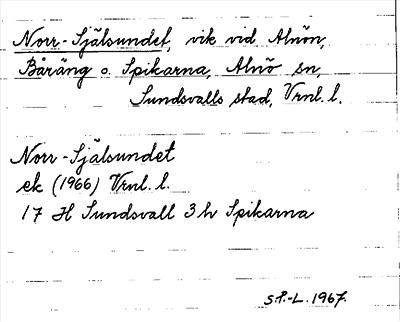 Norr-Själsundet, vik vid Alnön,
Båräng o. Spikarna, Alnö sn,
Sundsvalls stad, Vrnl. l.
Norr-Själsundet
ek (1966) Vrnl. l.
17 H Sundsvall 3 h Spikarna
S.P.-L. 1967.